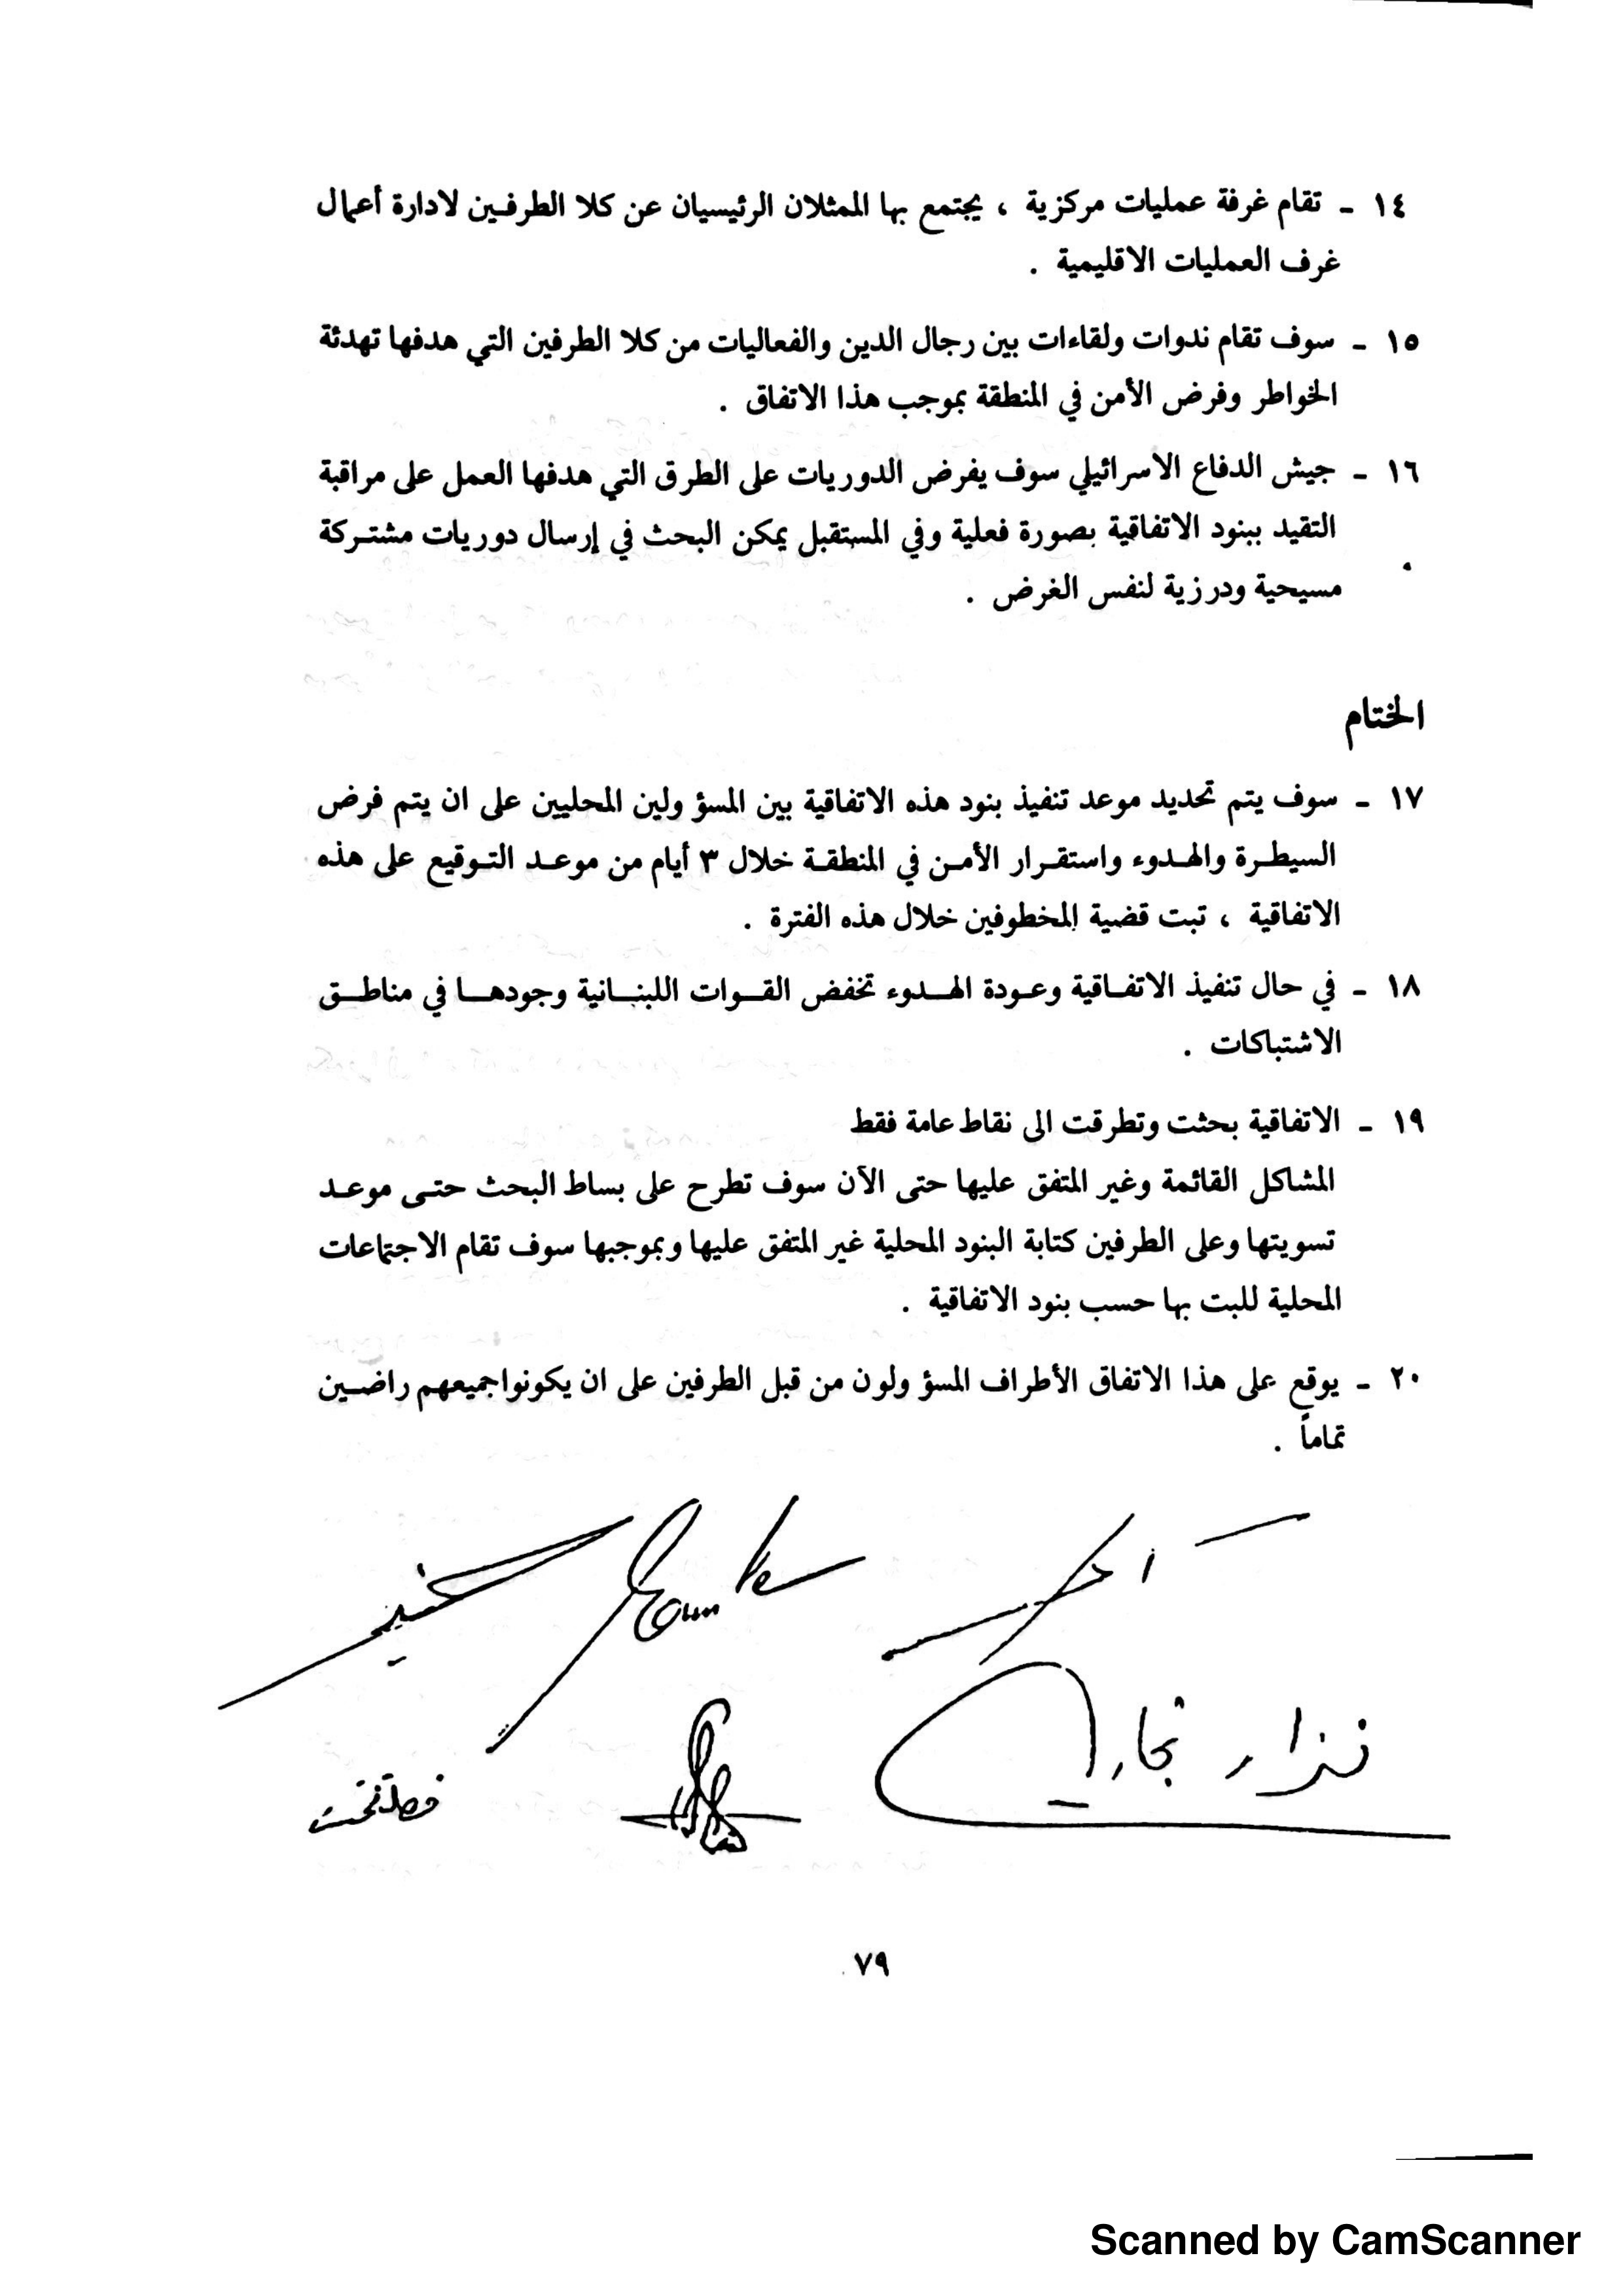 ١٤ - تقام غرفة عمليات مركزية ، يجتمع بها الممثلان الرئيسيان عن كلا الطرفين لادارة أعمال
غرف العمليات الاقليمية .
١٥ - سوف تقام ندوات ولقاءات بين رجال الدين والفعاليات من كلا الطرفين التي هدفها تهدئة
الخواطر وفرض الأمن في المنطقة بموجب هذا الاتفاق .
١٦ - جيش الدفاع الاسرائيلي سوف يفرض الدوريات على الطرق التي هدفها العمل على مراقبة
التقيد ببنود الاتفاقية بصورة فعلية وفي المستقبل يمكن البحث في إرسال دوريات مشتركة
مسيحية ودرزية لنفس الغرض .
الختام
١٧ - سوف يتم تحديد موعد تنفيذ بنود هذه الاتفاقية بين المسؤولين المحليين على ان يتم فرض
السيطرة والهدوء واستقرار الأمن في المنطقة خلال ٣ أيام من موعد التوقيع على هذه
الاتفاقية ، تبت قضية المخطوفين خلال هذه الفترة .
١٨ - في حال تنفيذ الاتفاقية وعودة الهدوء تخفض القوات اللبنانية وجودها في مناطق
الاشتباكات .
١٩ - الاتفاقية بحثت وتطرقت الى نقاط عامة فقط
المشاكل القائمة وغير المتفق عليها حتى الآن سوف تطرح على بساط البحث حتى موعد
تسويتها وعلى الطرفين كتابة البنود المحلية غير المتفق عليها وبموجبها سوف تقام الاجتماعات
المحلية للبت بها حسب بنود الاتفاقية .
٢٠ - يوقع على هذا الاتفاق الأطراف المسؤولون من قبل الطرفين على ان يكونوا جميعهم راضين
تماماً .
نزار نجاريان
٧٩
Scanned by CamScanner